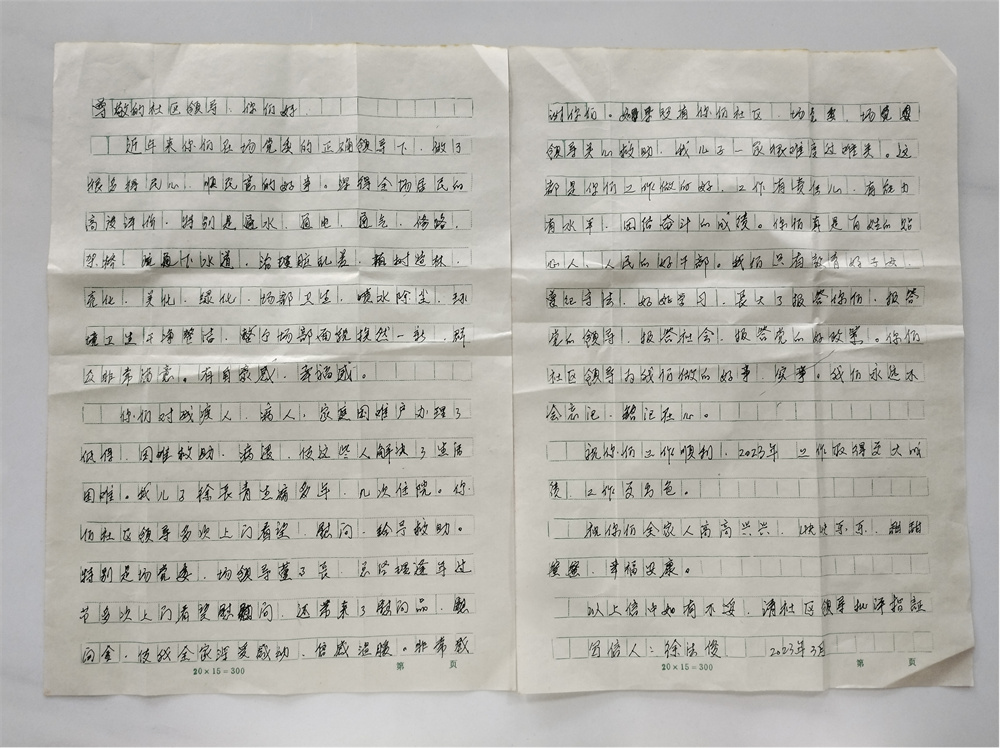 尊敬的社区领导、你们好
近年来你们在场党委的正确领导下、做了
很多得民心、顺民意的好事。深得全场居民的
高度评价、特别是通水、通电、通气、修路、
架桥、疏通下水道、治理脏乱差、植树造林、
亮化、美化、绿化、场部卫生、喷水除尘、环
境卫生干净整洁、整个场部面貌换然一新、群
众非常满意。有自豪感、幸福感。
你们对残疾人、病人、家庭困难户办理了
低保、困难救助、病援、使这些人解决了生活
困难。我儿子徐长青生病多年、几次住院。你
们社区领导多次上门看望、慰问、给予救助。
特别是场党委、场领导董事长、总经理逢年过
节多次上门看望慰问、还带来了慰问品、慰
问金、使我全家深受感动、倍感温暖。非常感
谢你们。如果没有你们社区、场党委
领导关心救助、我儿子一家很难度过难关。这
都是你们工作做的好、工作有责任心、有能力
有水平、团结奋斗的成绩。你们真是百姓的贴
心人、人民的好干部。我们只有教育好子女、
遵纪守法、好好学习、长大了报答你们、报答
党的领导、报答社会、报答党的好政策。你们
社区领导为我们做的好事、实事。我们永远不
会忘记、铭记在心。
祝你们工作顺利、2023年工作取得更大成
绩、工作更出色。
祝你们全家人高高兴兴、快快乐乐、甜甜
蜜蜜、幸福安康。
以上信中如有不妥、请社区领导批评指正
写信人：徐 俊 2023年3月
20×15=300 第 页
20×15=300 第 页